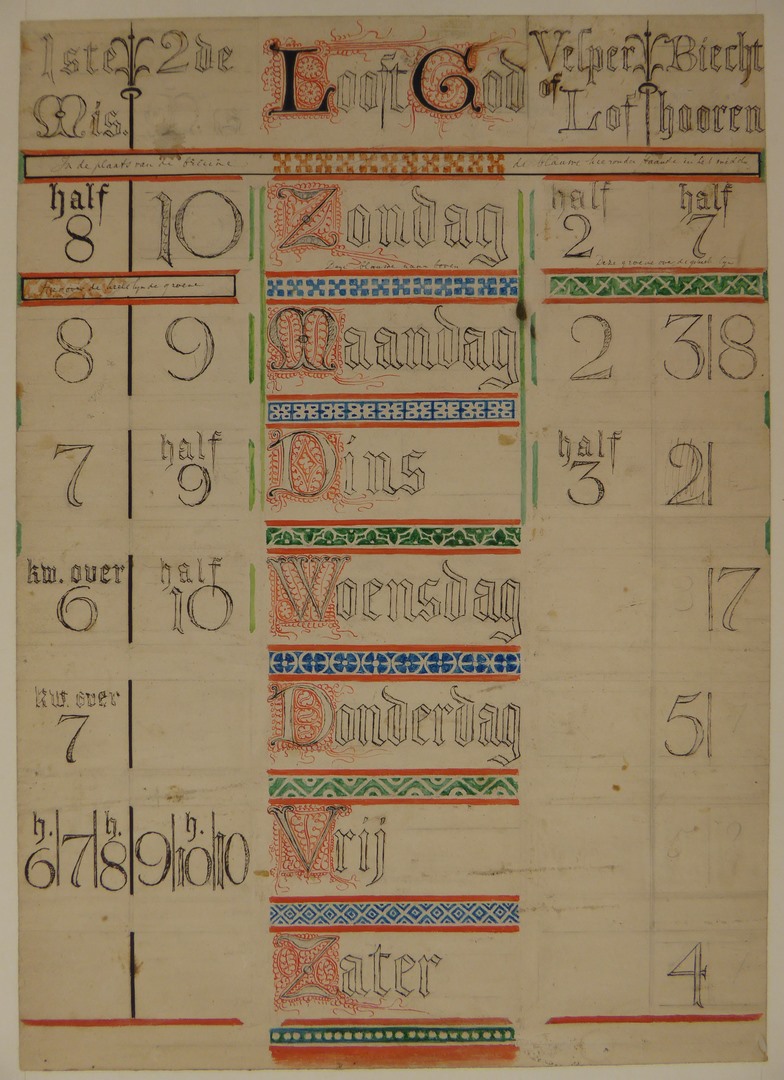 1ste 2de Looft God Vesper Biecht
Mis. of Lof hooren
In de plaats van de de blauwe hieronder
half half half
8 10 Zondag 2 7
Deze blauwe naar boven Deze groene
de groene
8 9 Maandag 2 3|8
half half
7 9 Dins 3 2|
kw. over half
6 10 Woensdag |7
kw. over
7 Donderdag 5|
h. h. h.
6|7|8 9|10|10 Vrij
Zater 4